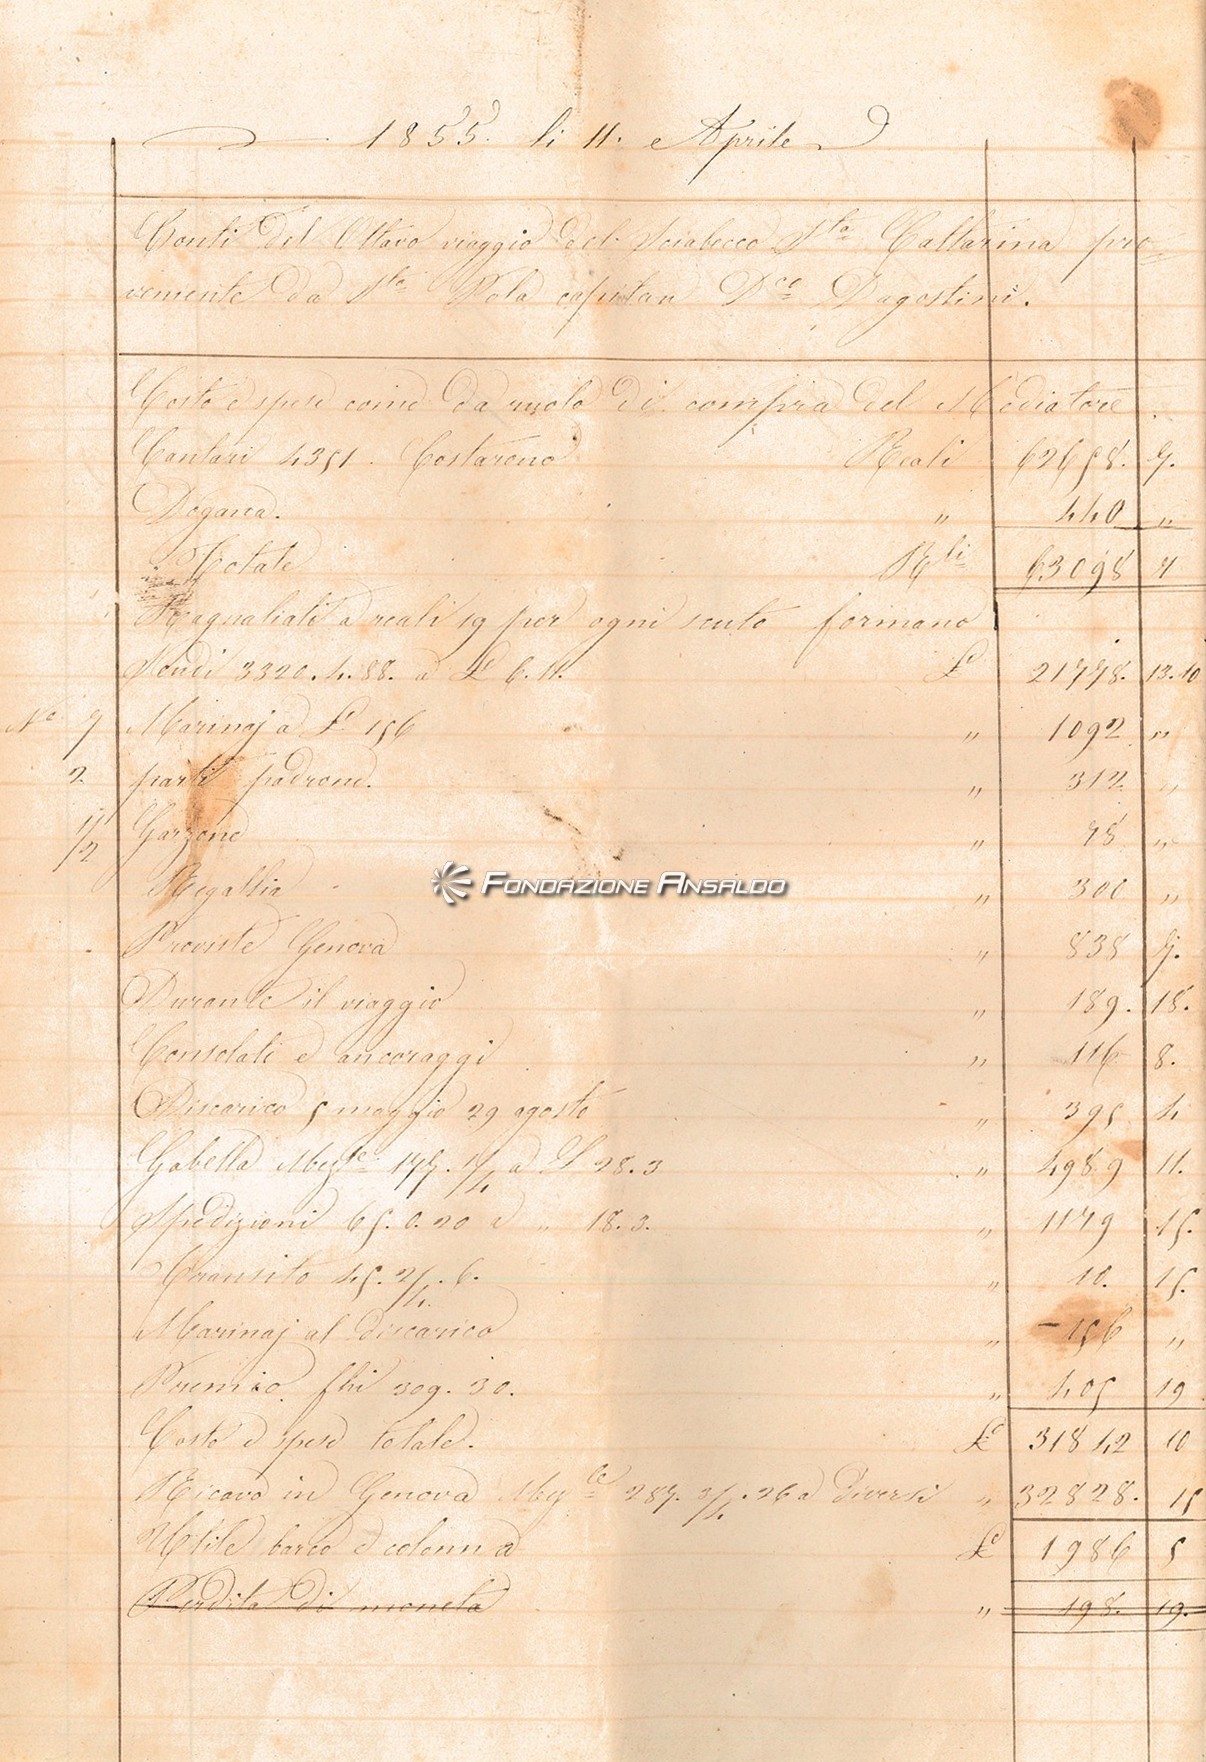 1855. li 11. Aprile
Conti del Ottavo viaggio del Sciabecco Sta Cattarina pro-
veniente da Sta Pola capitan Dco Dagostini.
Costo e spese come da ruolo di compra del Mediatore.
Cantari 4351. Costarono Reali 62658. 7.
Dogana. " 440 "
Totale Rli 63098 7
Ragualiati a reali 19 per ogni scuto formano
Scudi 3320.4.88. a £ 6.11. £ 21778. 13.10
No 7 Marinaj a £ 156 " 1092 "
2 parti padrone. " 312 "
1/2 Garzone " 78 "
Regallia " 300 "
FONDAZIONE ANSALDO
Proviste Genova " 838 7.
Durante il viaggio " 189. 18.
Consolati e ancoraggi " 116 8.
Discarico 5 maggio 29 agosto " 395 4
Gabella 177. 1/4 a £ 28.3 " 4989 11.
Spedizioni 65.0.20 a " 18.3. " 1179 15.
Transito 45. 2/4. 6. " 10. 15.
Marinaj al discarico " 156 "
Premio 309.30. " 405 19
Costo e spese totale. £ 31842 10
Ricavo in Genova 287. 3/4. 26 a diversi " 32828. 15
Utile barco e colonna £ 1986 5
Perdita di moneta " 198. 19.